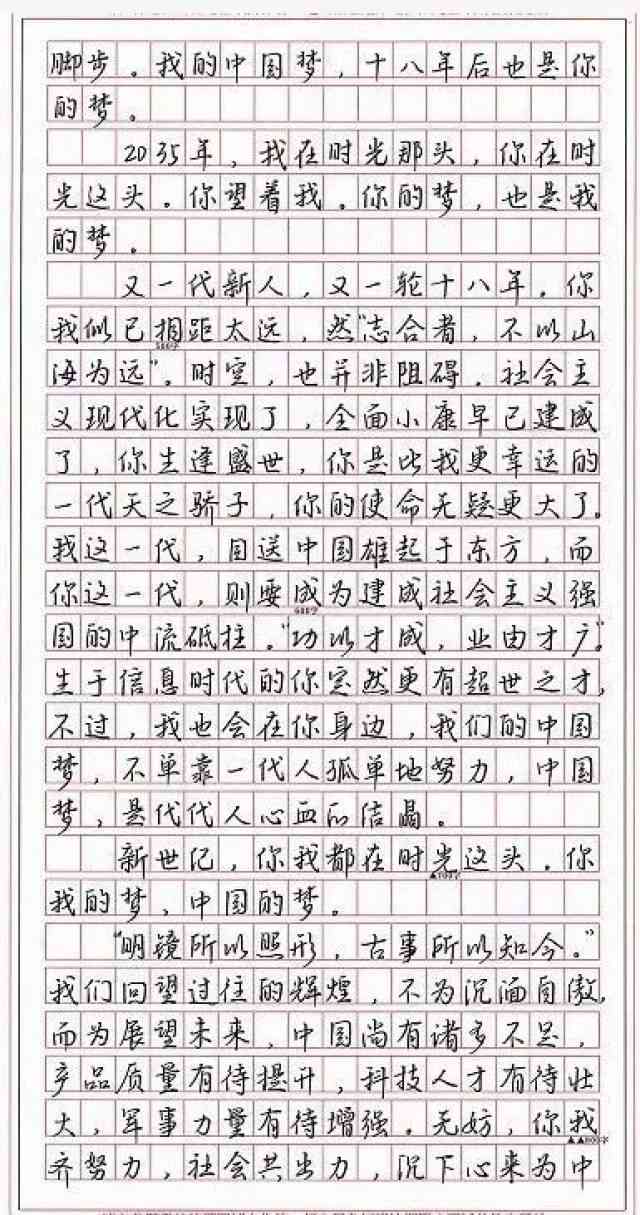 脚步。我的中国梦，十八年后也是你
的梦。
2035年，我在时光那头，你在时
光这头。你望着我。你的梦，也是我
的梦。
又一代新人，又一轮十八年。你
我似已相距太远，然“志合者，不以山
海为远”。时空，也并非阻碍。社会主
义现代化实现了，全面小康早已建成
了，你生逢盛世，你是比我更幸运的
一代天之骄子，你的使命无疑更大了。
我这一代，目送中国雄起于东方，而
你这一代，则要成为建成社会主义强
国的中流砥柱。“功以才成，业由才广”。
生于信息时代的你定然更有超世之才，
不过，我也会在你身边，我们的中国
梦，不单靠一代人孤单地努力，中国
梦，是代代人心血的结晶。
新世纪，你我都在时光这头。你
▲700字
我的梦、中国的梦。
“明镜所以照形，古事所以知今。”
我们回望过往的辉煌，不为沉湎自傲，
而为展望未来，中国尚有诸多不足，
产品质量有待提升，科技人才有待壮
大，军事力量有待增强。无妨，你我
▲▲800字
齐努力，社会共出力，沉下心来为中